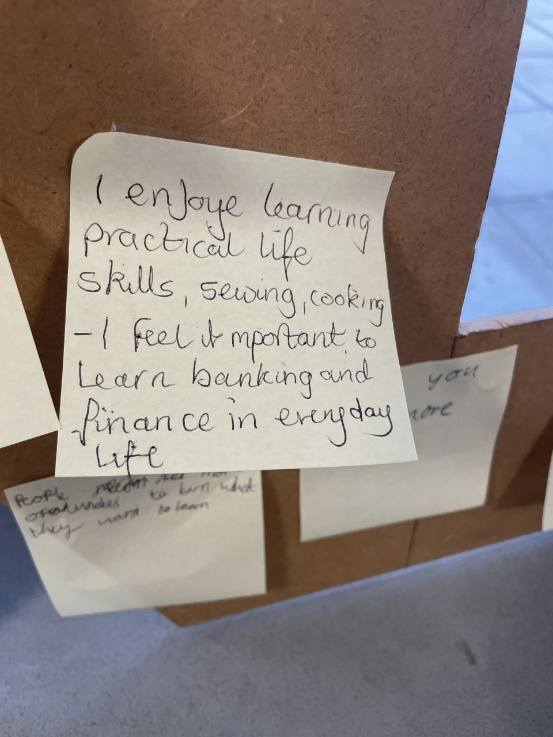 I enjoye learning
practical life
skills, sewing, cooking
- I feel it mportant to
Learn banking and
finance in everyday
life
you
more
People
to learn what
they want to learn